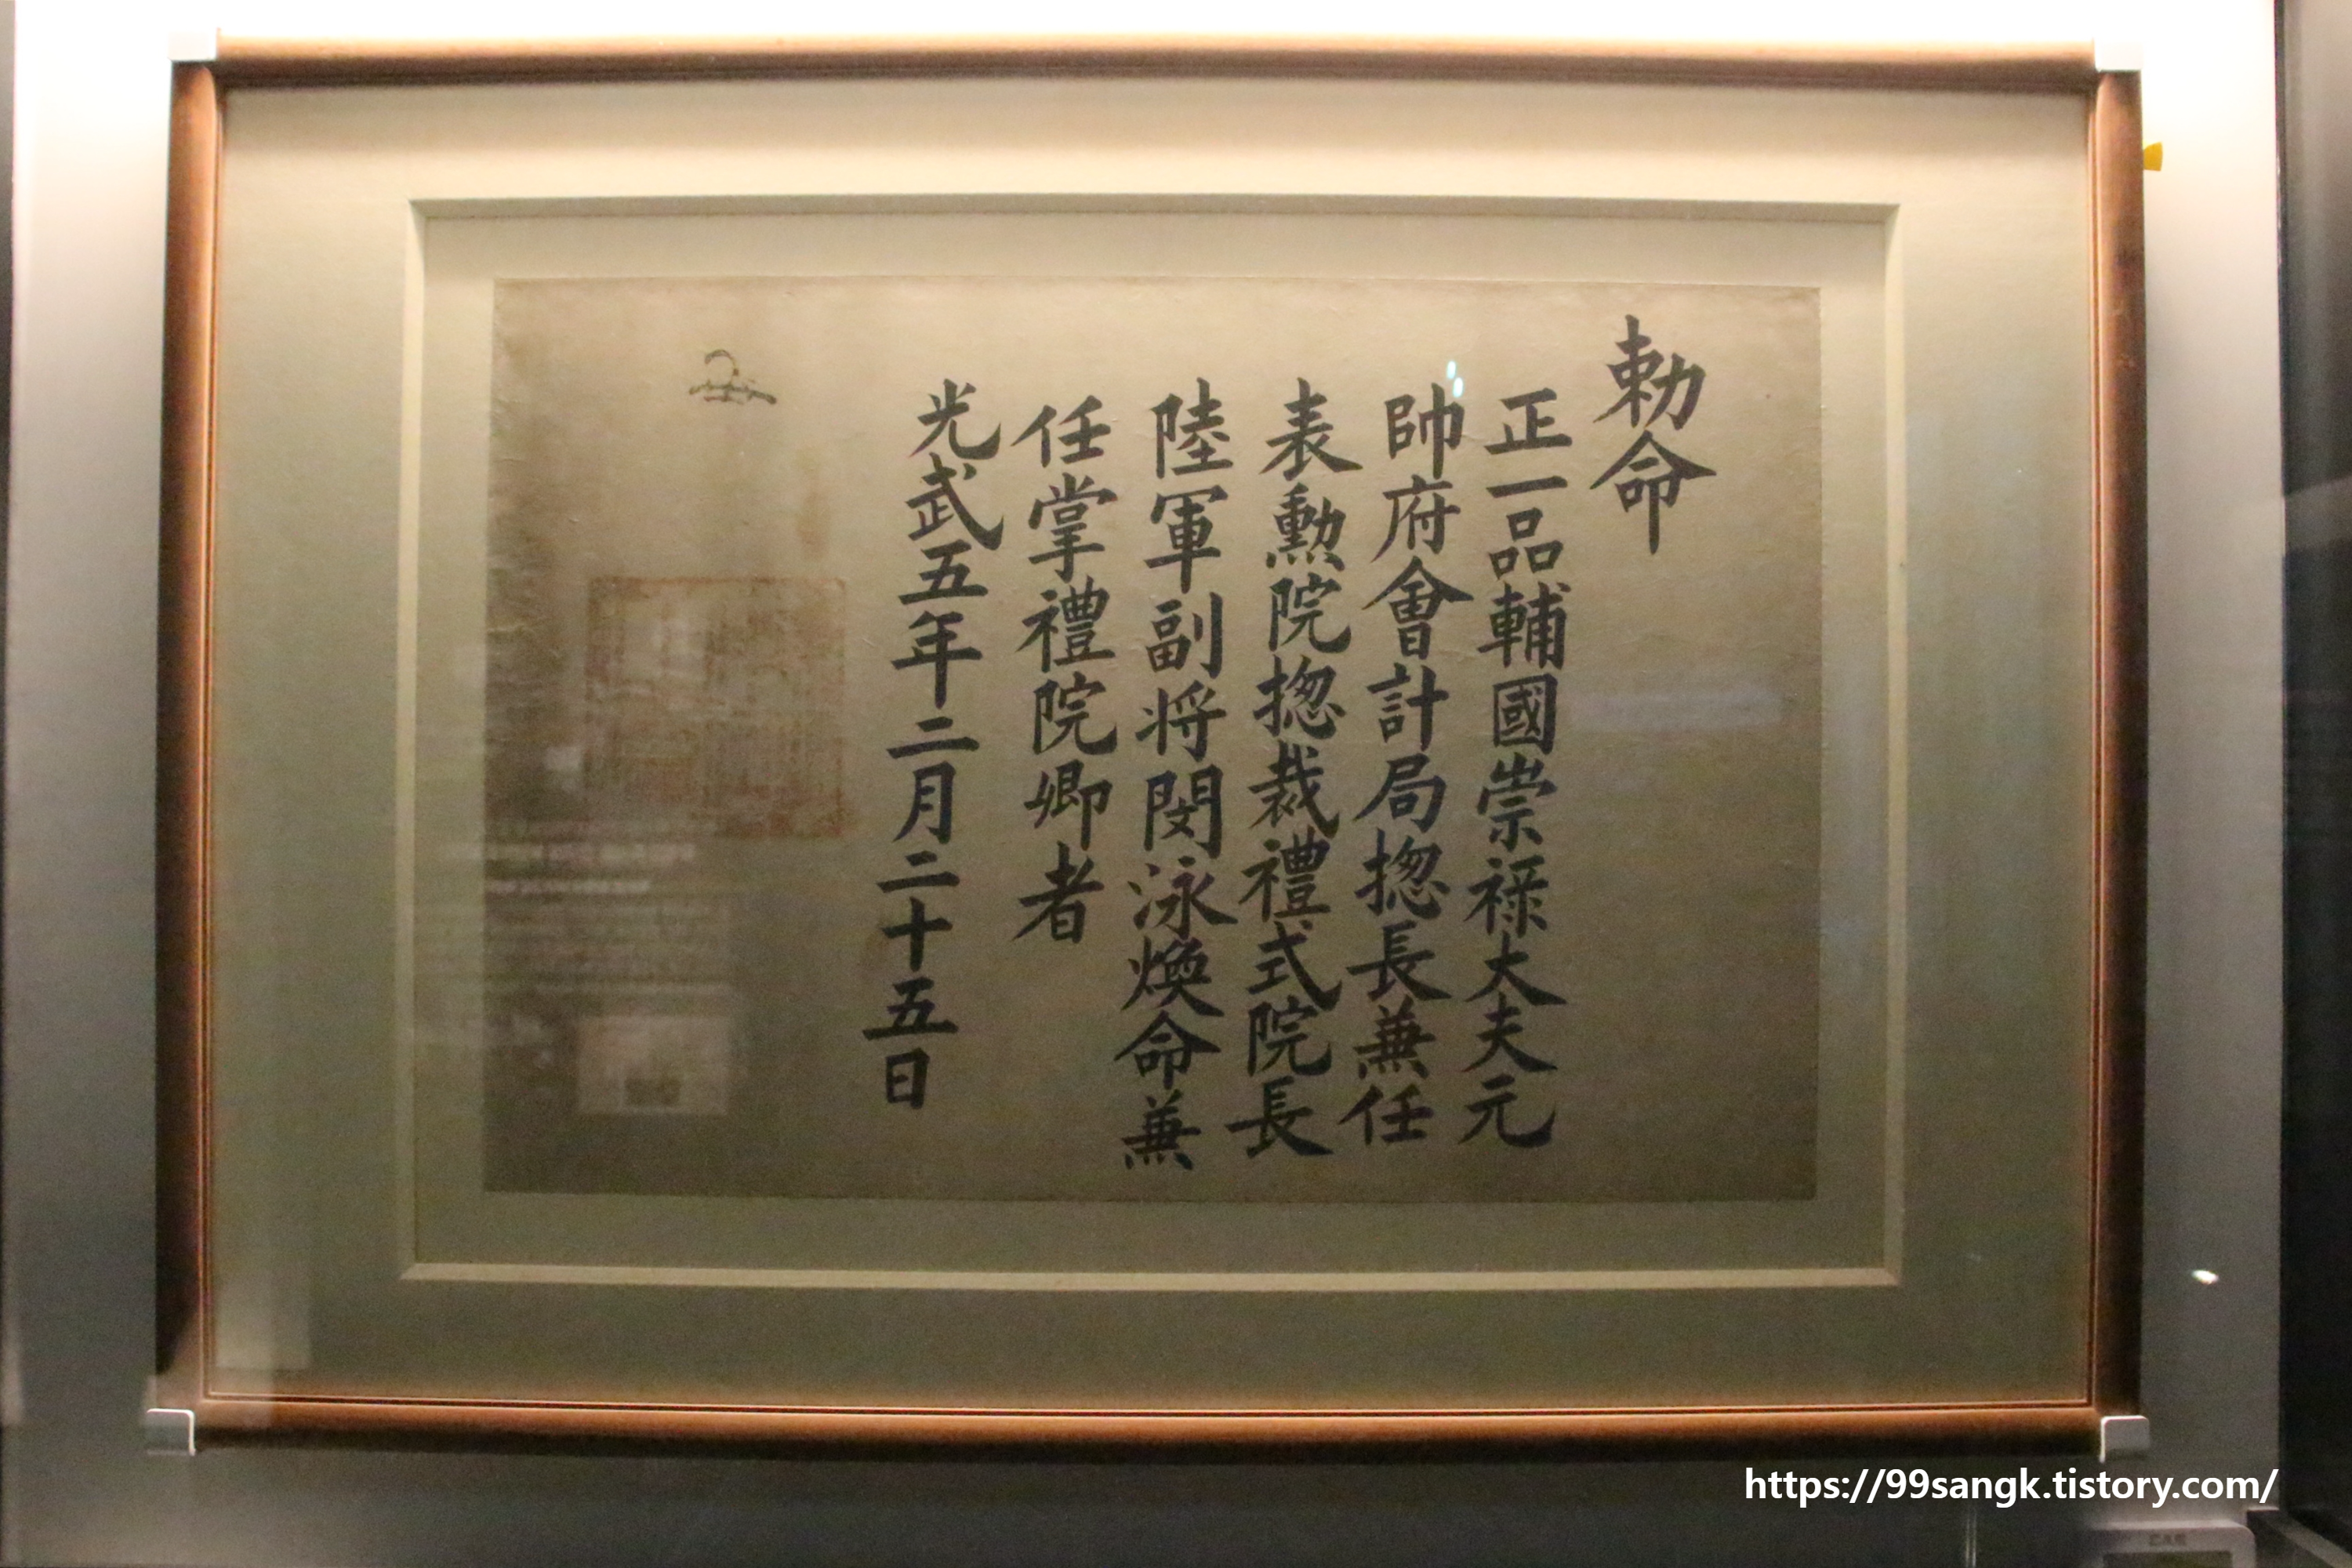 勅命
正一品輔國崇祿大夫元
帥府會計局摠長兼任
表勳院摠裁禮式院長
陸軍副将閔泳煥命兼
任掌禮院卿者
光武五年二月二十五日
https://99sangk.tistory.com/